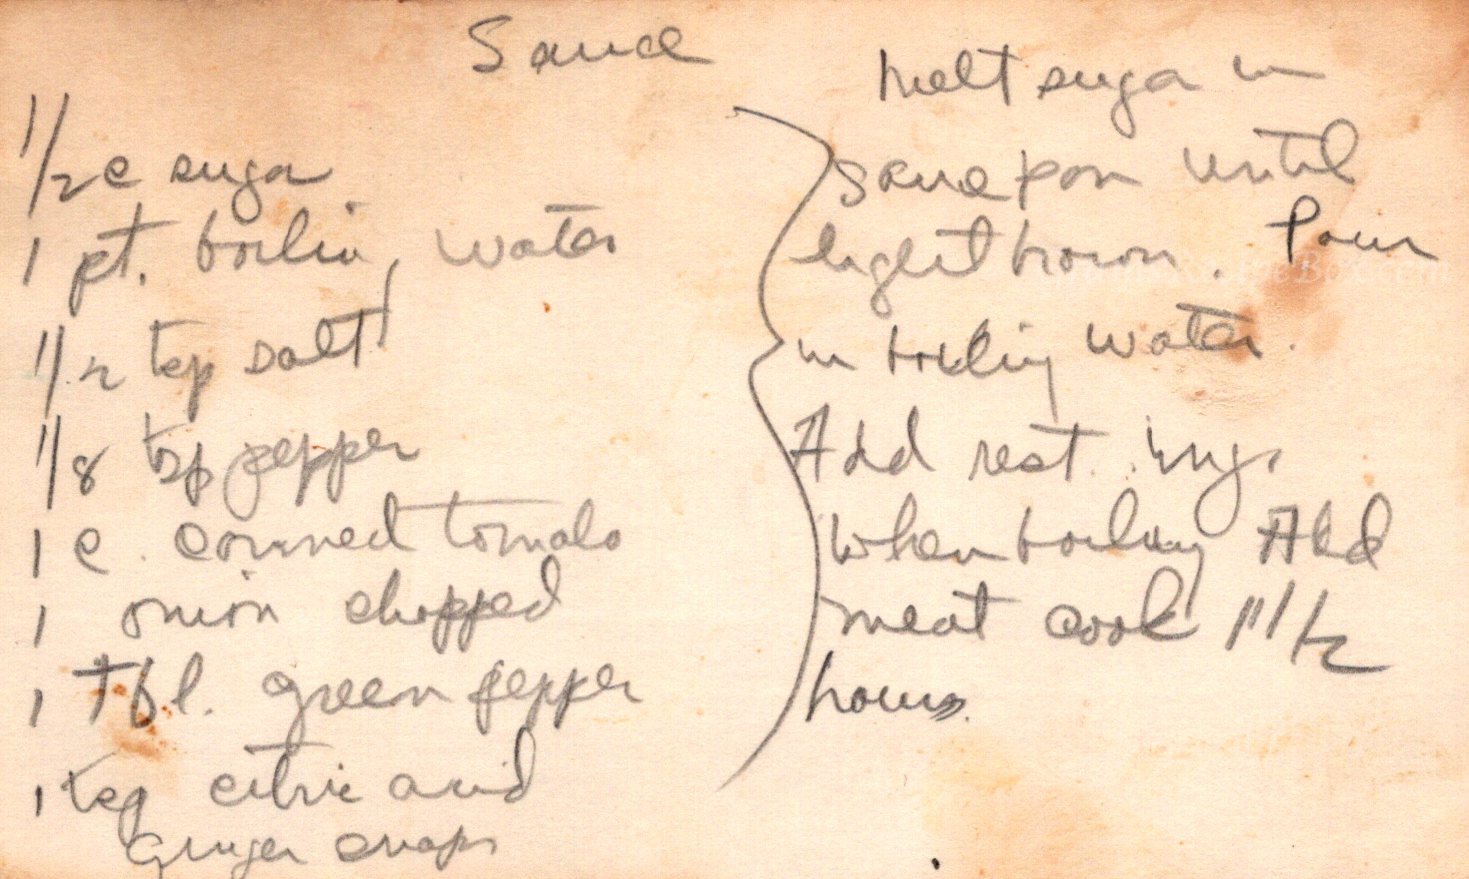 Sauce
1/2 c sugar
1 pt. boiling water
1/2 tsp salt
1/8 tsp pepper
1 c. canned tomato
1 onion chopped
1 Tbl. green pepper
1 tsp citric acid
Ginger snaps
Melt sugar in
sauce pan until
light brown. Pour
in boiling water.
Add rest. ing.
When boiling Add
meat cook 1 1/2
hours.